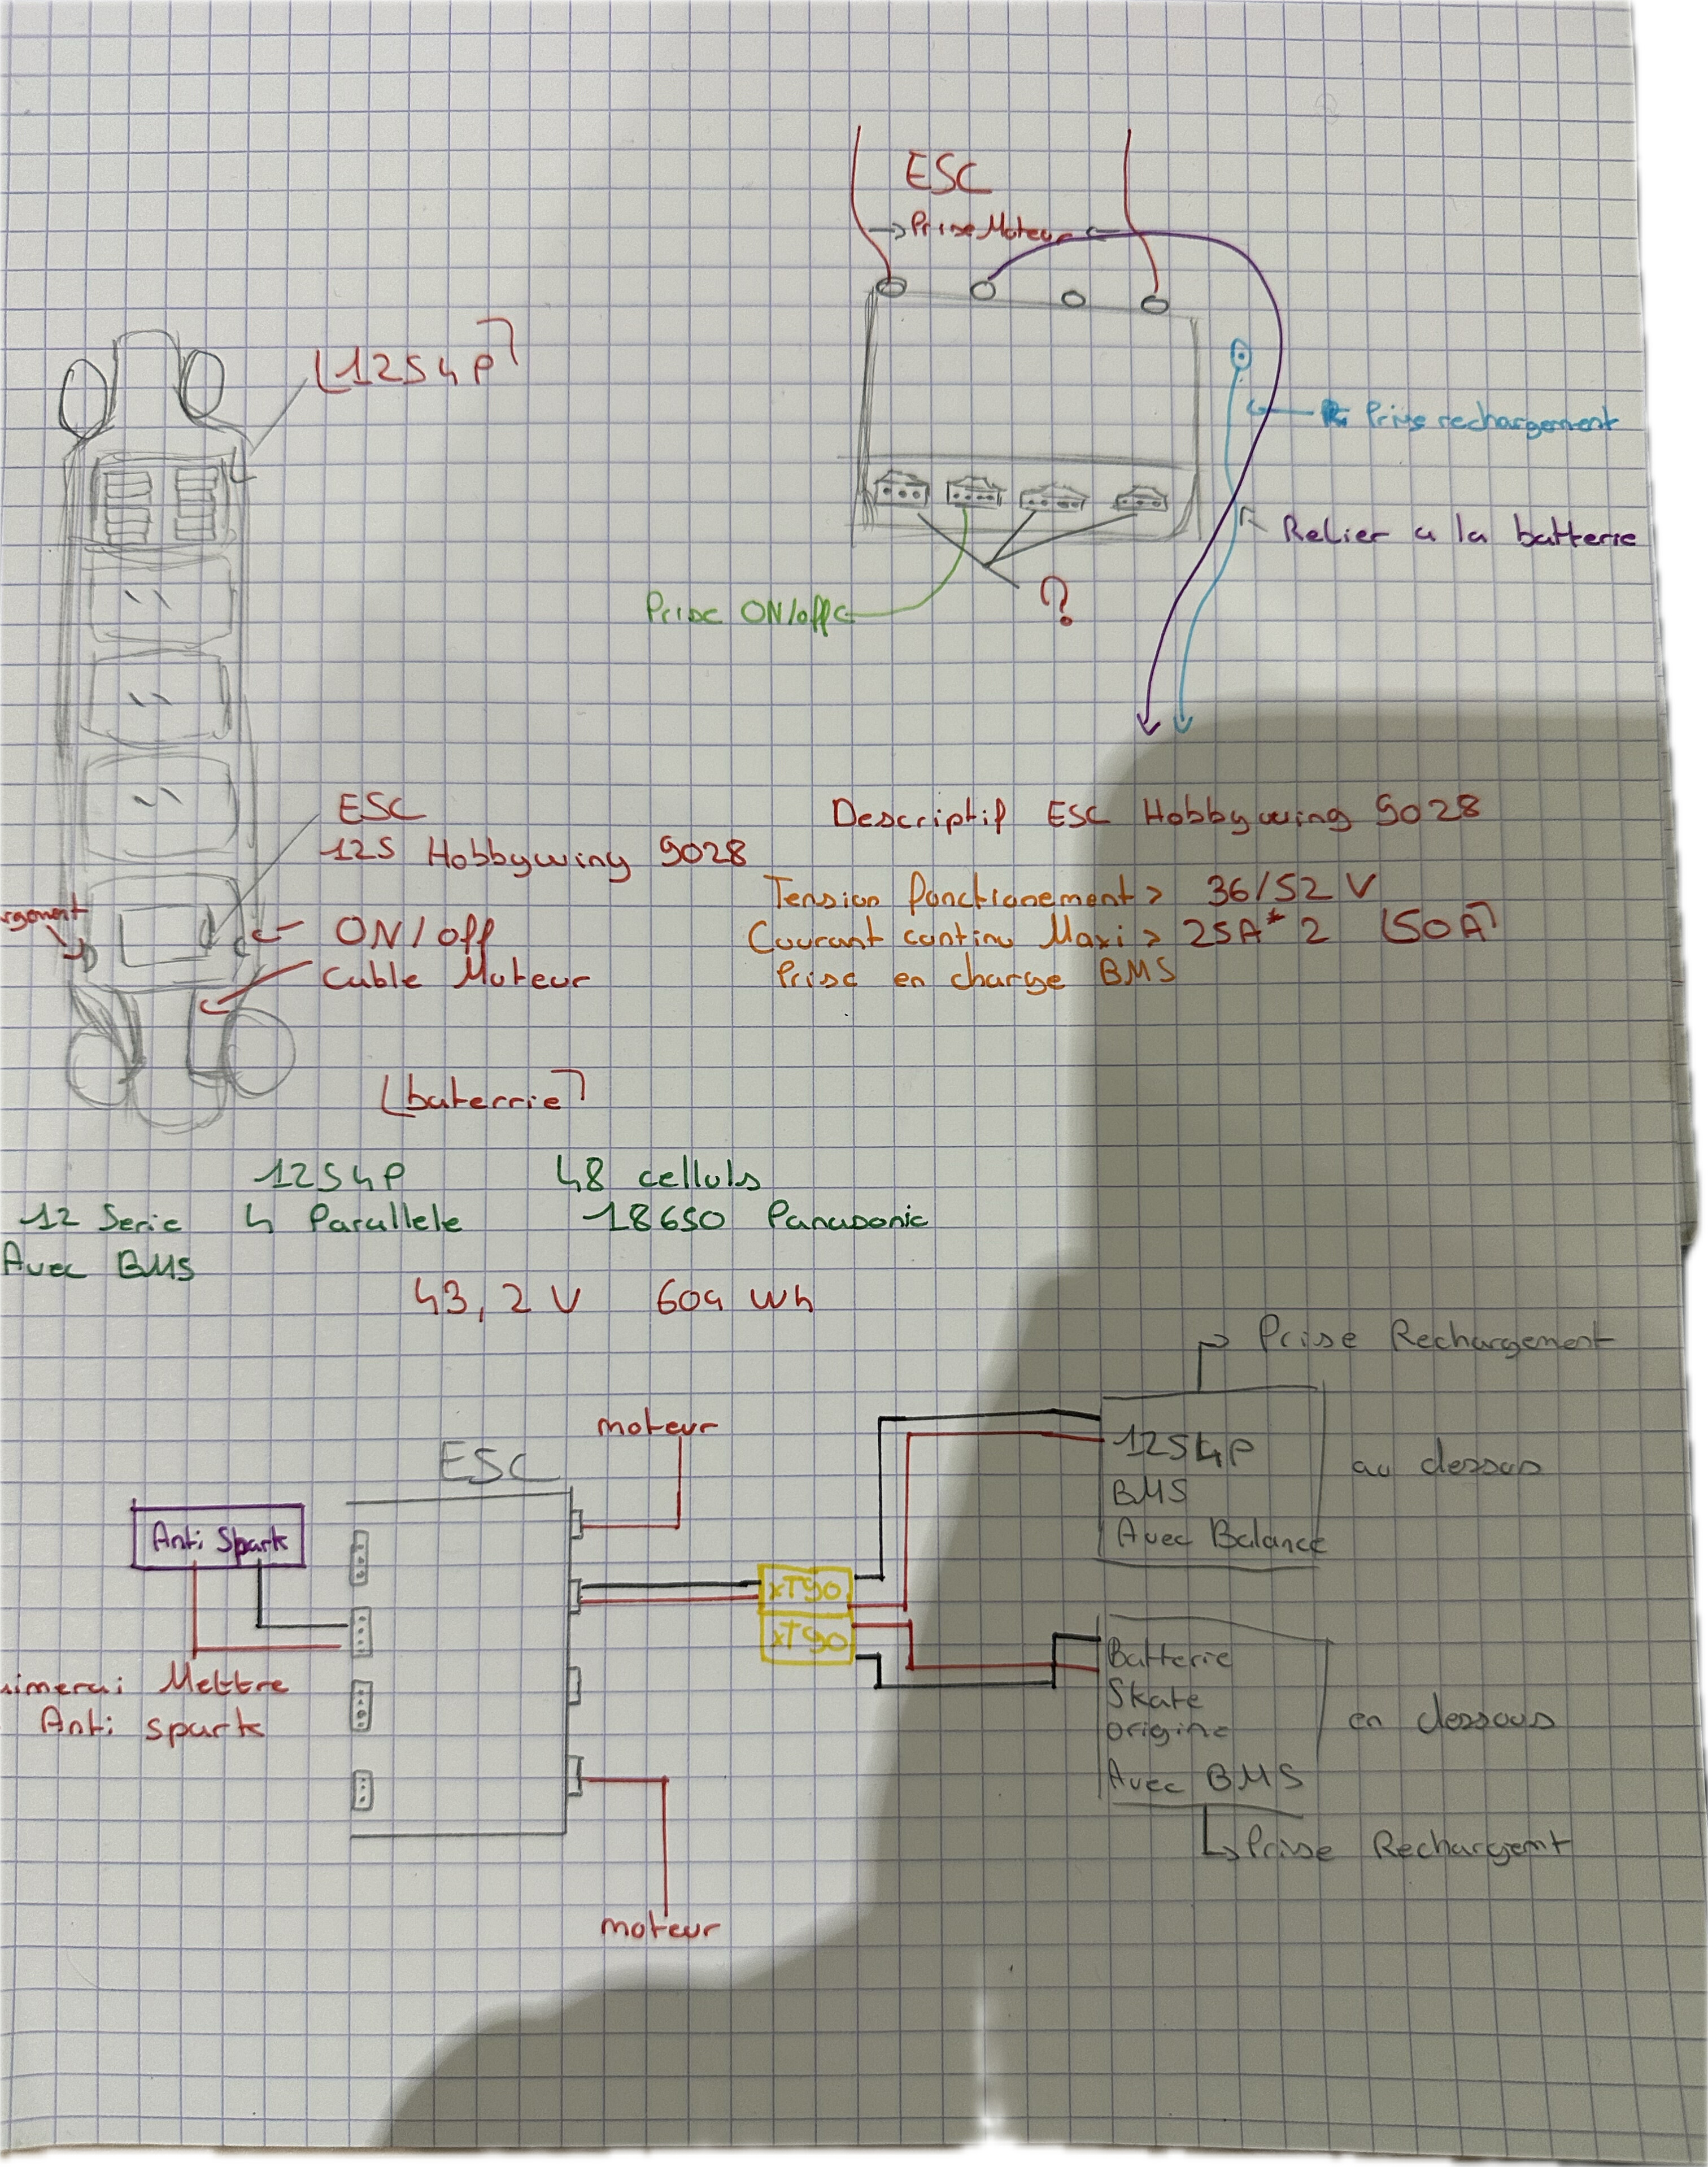 ESC
Prise Moteur
12S4P
Prise rechargement
Relier a la batterie
Prise ON/off
?
ESC
12S Hobbywing 9028
ON/off
Cable Moteur
Descriptif ESC Hobbywing 9028
Tension fonctionement > 36/52 V
Courant continu Maxi > 25A* 2 (50A)
Prise en charge BMS
(baterrie)
12S4P 48 celluls
12 Serie 4 Parallele 18650 Panasonic
Avec BMS
43,2 V 604 Wh
Prise Rechargement
moteur
ESC
12S4P
BMS
Avec Balance
au dessus
Anti Spark
XT90
XT90
Mettre
Anti spark
Batterie
Skate
origine
Avec BMS
en dessous
Prise Rechargemt
moteur